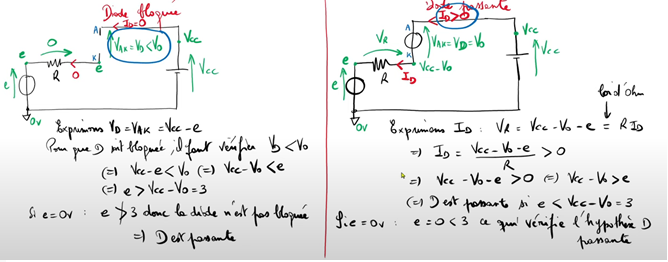 Diode bloquée
I_D=0
A
V_AK=V_D<V_0
K
Vcc
Vcc
0
e
R
0
e
0v
Exprimons V_D=V_AK=Vcc-e
Pour que D est bloquée, il faut vérifier V_D<V_0
(=) Vcc-e<V_0 (=) Vcc-V_0<e
(=) e>Vcc-V_0=3
Si e=0v : e ≯ 3 donc la diode n'est pas bloquée
=) D est passante
diode passante
I_D>0
A
V_AK=V_D=V_0
K
Vcc
Vcc
V_R
e
R
I_D
Vcc-V_0
e
0v
loi d'ohm
Exprimons I_D : V_R = Vcc-V_0-e = R I_D
=) I_D = (Vcc-V_0-e)/R > 0
=) Vcc-V_0-e>0 (=) Vcc-V_0>e
(=) D est passante si e<Vcc-V_0=3
Si e=0v : e=0<3 ce qui vérifie l'hypothèse D
passante